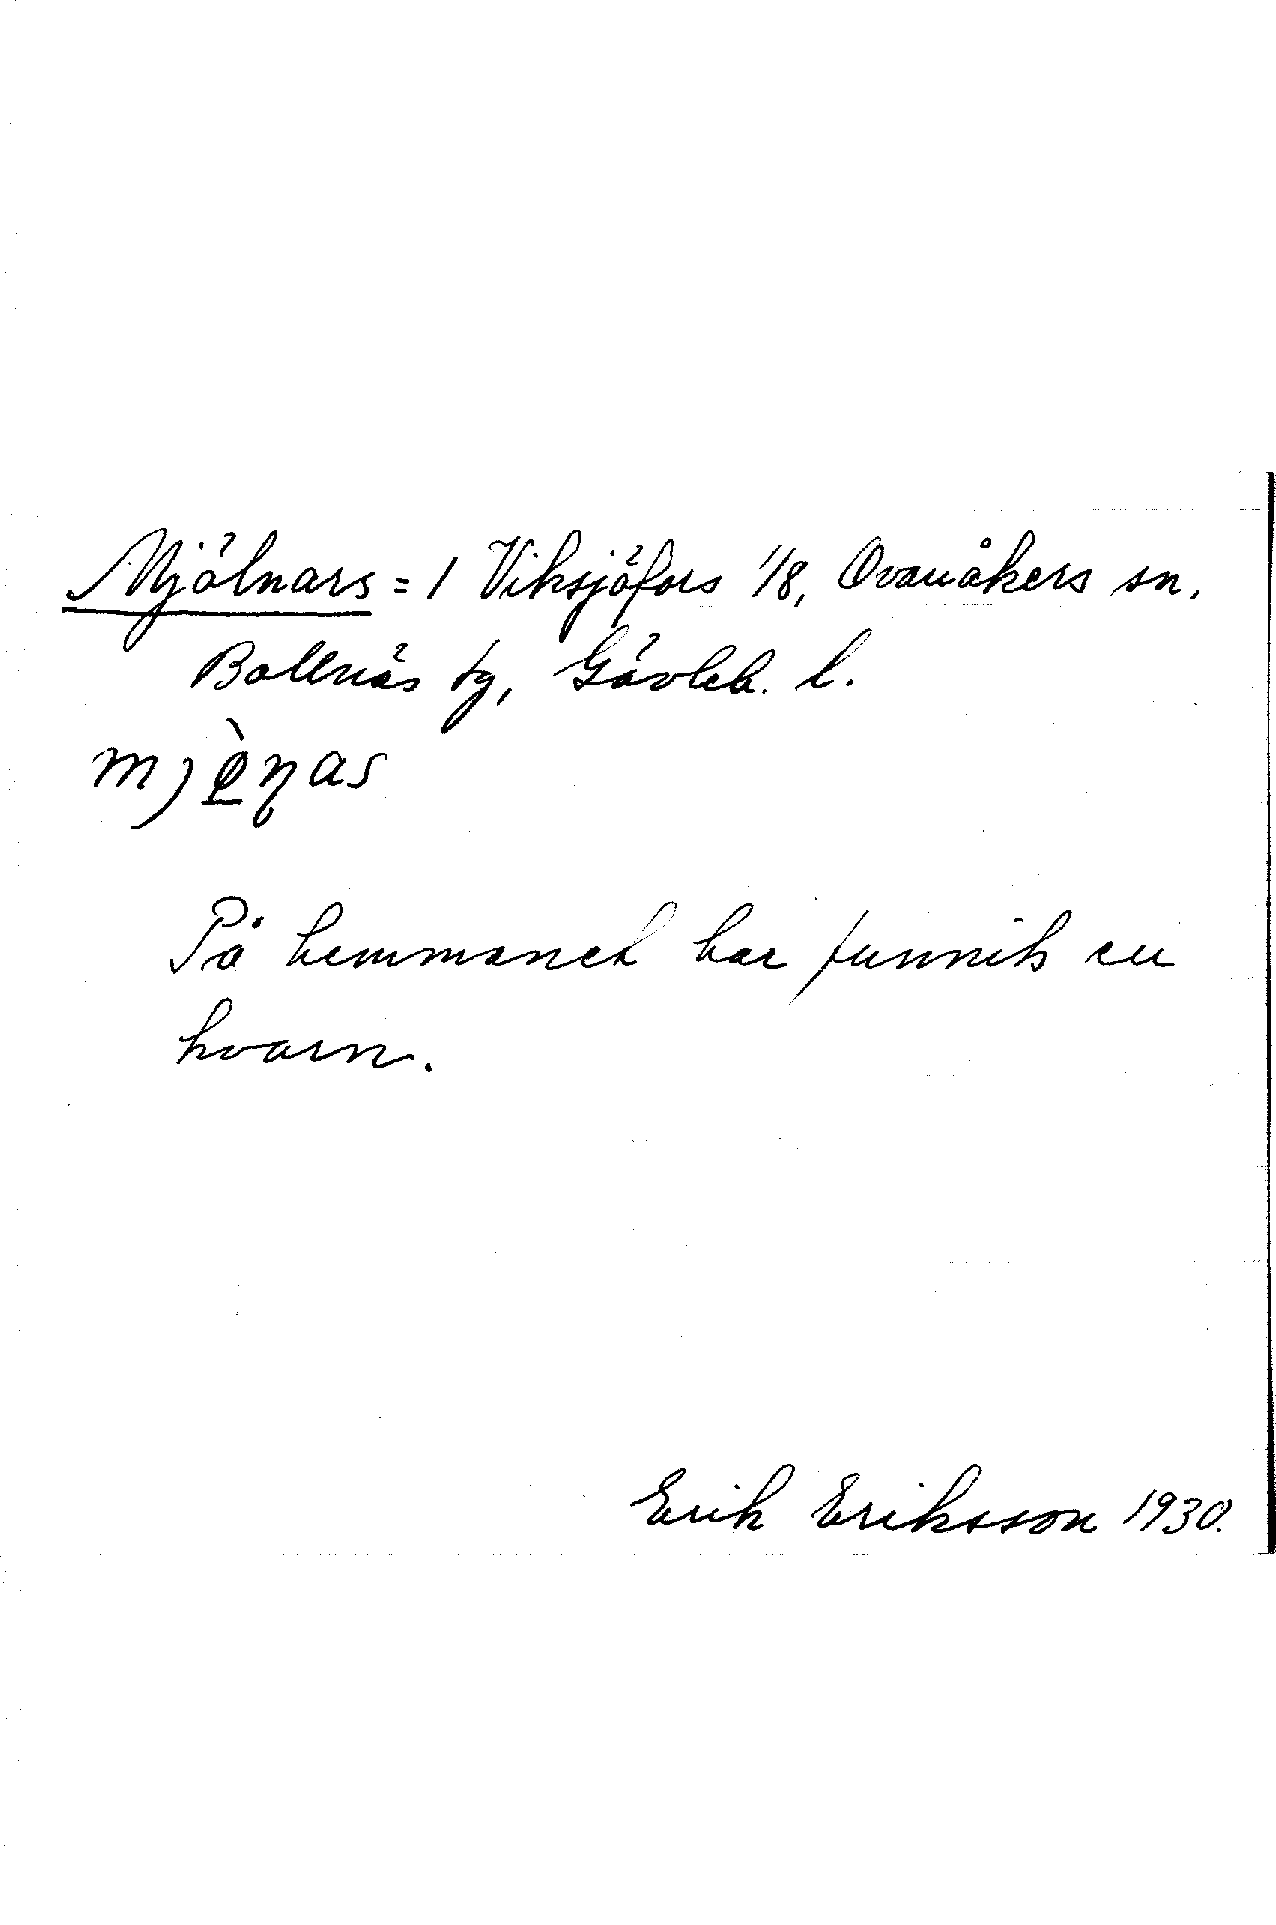 Mjölnars = 1 Viksjöfors 1/8, Ovanåkers sn.
Bollnäs tg, Gävleb. l.
På hemmanet har funnits en
kvarn.
Erik Eriksson 1930.